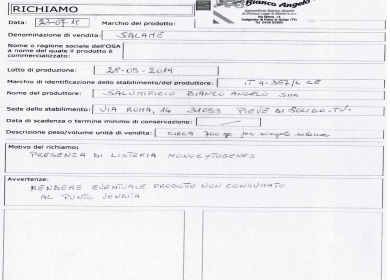 RICHIAMO
Bianco Angelo
Data: 23-07-18 Marchio del prodotto:
Denominazione di vendita: SALAME
Nome o ragione sociale dell'OSA
a nome del quale il prodotto è
commercializzato:
Lotto di produzione: 28-05-2019
Marchio di identificazione dello stabilimento/del produttore: IT 9-367/L CE
Nome del produttore: SALUMIFICIO BIANCO ANGELO SNC
Sede dello stabilimento: VIA ROMA, 14 31053 PIEVE DI SOLIGO-TV-
Data di scadenza o termine minimo di conservazione:
Descrizione peso/volume unità di vendita: CIRCA 700 gr per singolo salame
Motivo del richiamo:
PRESENZA DI LISTERIA MONOCYTOGENES
Avvertenze:
RENDERE EVENTUALE PRODOTTO NON CONSUMATO
AL PUNTO VENDITA